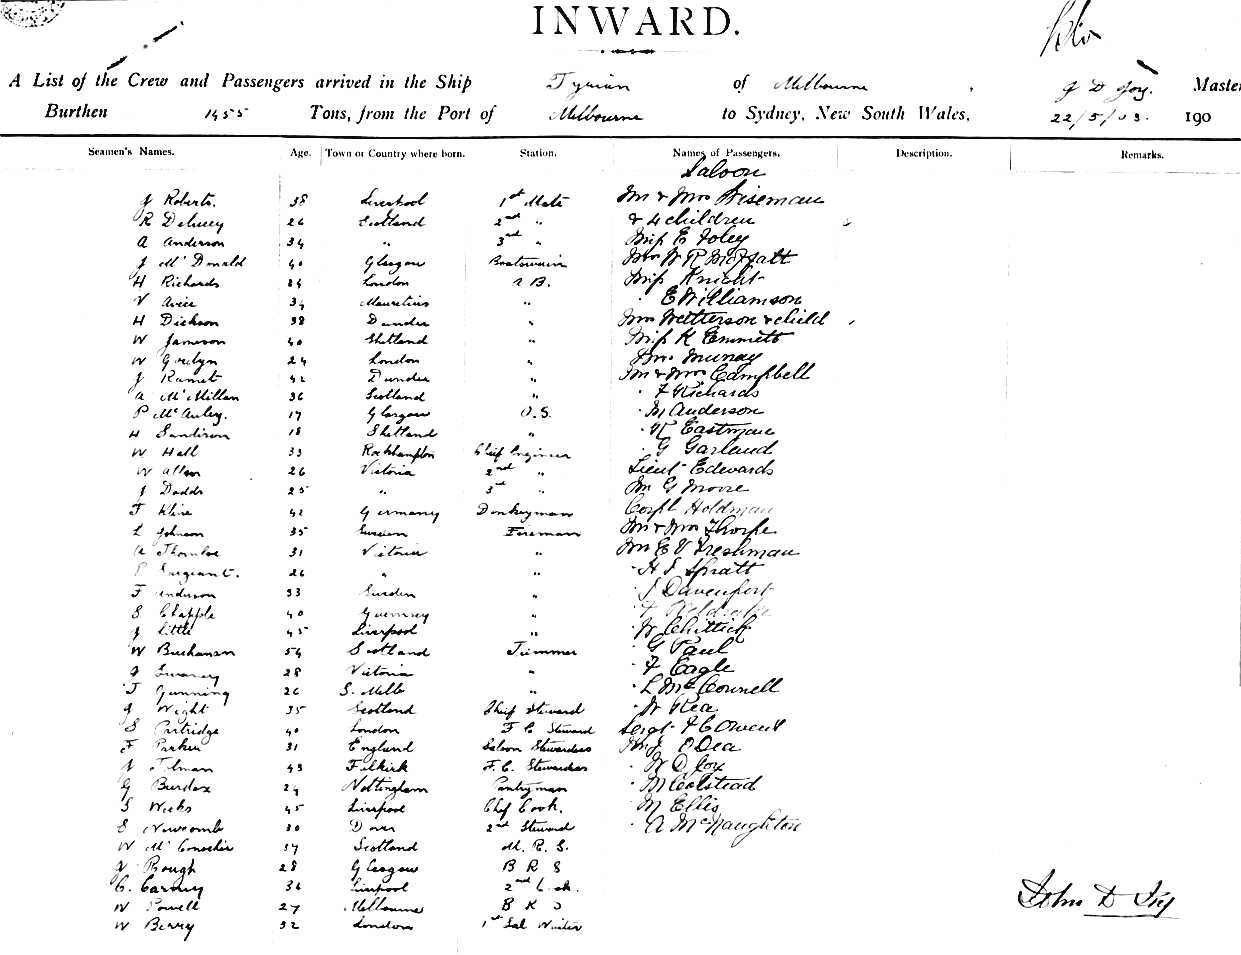 INWARD.
A List of the Crew and Passengers arrived in the Ship Tyrian of Melbourne, J D Joy. Master
Burthen 1455 Tons, from the Port of Melbourne to Sydney, New South Wales, 22/5/03. 190
Seamen's Names. Age. Town or Country where born. Station. Names of Passengers. Description. Remarks.
Saloon
J Roberts. 38 Liverpool 1st Mate Mr & Mrs Wiseman
R Delucey 26 Scotland 2nd " & 4 children
A Anderson 34 " 3rd " Miss E Foley
J McDonald 40 Glasgow Boatswain Mrs W R Moffatt
H Richards 24 London A B. Miss Knight
V Avice 34 Mauritius " " E Williamson
H Dickson 38 Dundee " Mrs Wetterson & child
W Jameson 40 Shetland " Miss K Emmett
W Goulyn 24 London " Mrs Murray
J Ramet 42 Dundee " Mr & Mrs Campbell
A McMillan 36 Scotland " " F Richards
P McAuley. 17 Glasgow O.S. " M Anderson
H Sandison 18 Shetland " " R Eastman
W Hall 33 Rockhampton Chief Engineer " G Garland
W Allan 26 Victoria 2nd " Lieut Edwards
J Dodds 25 " 3rd " Mr G Moore
F Kline 42 Germany Donkeyman Corpl Holdman
L Johnson 35 Sweden Fireman Mr & Mrs Thorpe
A Thomloe 31 Victoria " Mr E V Freshman
P Sargeant. 26 " " " H J Spratt
F Anderson 33 Sweden " " J Davenport
S Chapple 40 Guernsey "
J Little 45 Liverpool " " W Chittick
W Buchanan 54 Scotland Trimmer " G Paul
28 Victoria " " F Eagle
J Gunning 26 S. Melb " " L McConnell
J Wight 35 Scotland Chief Steward " W Rea
S Partridge 40 London F C Steward Sergt F C Owens
F Parker 31 England Saloon Stewardess Mr J O'Dea
J Tilman 43 Falkirk F.C. Stewardess " W D Cox
G Burdex 24 Nottingham Pantryman " M Colstead
S Weeks 45 Liverpool Chef Cook. " M Ellis
S Newcomb 30 Dover 2nd Steward " A McNaughton
W McConochie 37 Scotland M. R. S.
J Bough 28 Glasgow B R S
C. Carney 36 Liverpool 2nd Cook.
W Powell 27 Melbourne B K
W Berry 32 London 1st Sal Waiter
John D Joy